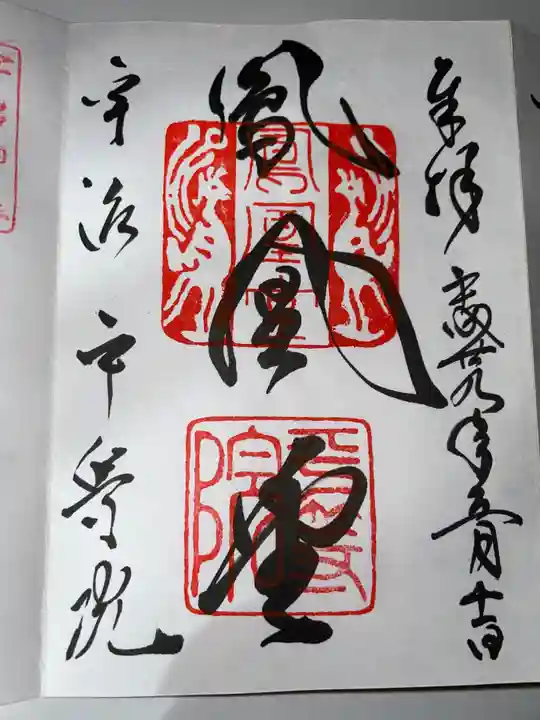 奉拝 平成廿九年五月十一日
鳳凰堂
宇治平等院
鳳凰堂
平等院